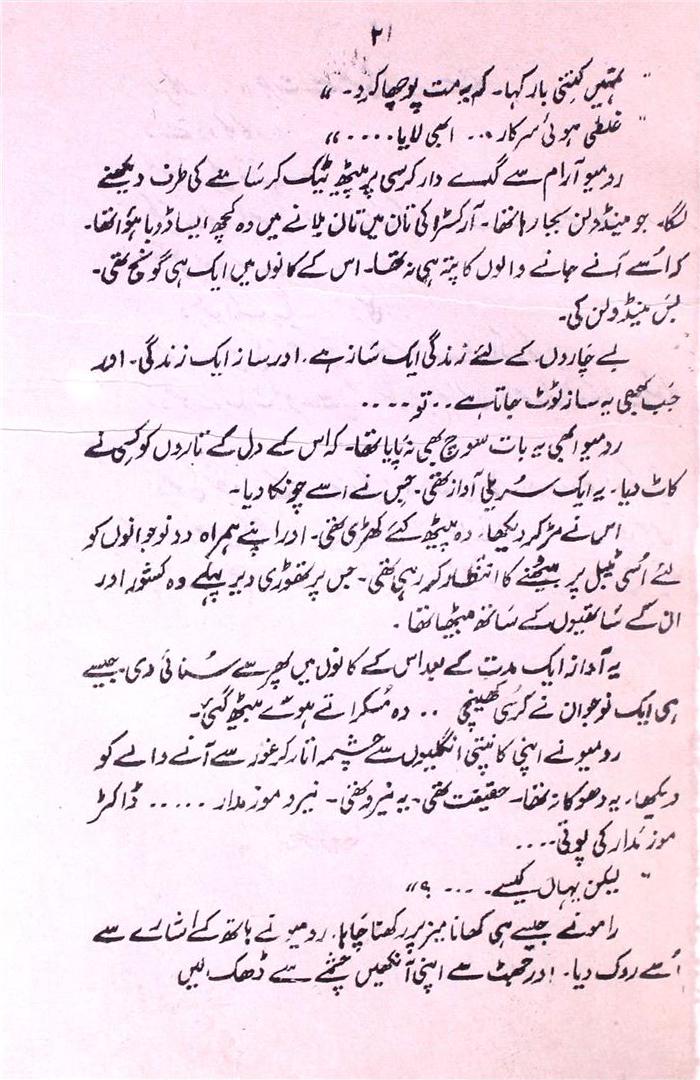 ۲۱
" تمہیں کتنی بار کہا۔ کہ یہ مت پوچھا کرو۔ "
" غلطی ہوئی سرکار ... ابھی لایا .... "
رومیو آرام سے گدے دار کرسی پر پیٹھ ٹیک کر سامنے کی طرف دیکھنے
لگا۔ جو مینڈولن بجا رہا تھا۔ آرکسٹرا کی تان میں تان ملانے میں وہ کچھ ایسا ڈوبا ہؤا تھا۔
کہ اُسے آنے جانے والوں کا پتہ ہی نہ تھا۔ اس کے کانوں میں ایک ہی گونج تھی۔
بس مینڈولن کی۔
بے چاروں کے لئے زندگی ایک ساز ہے۔ اور ساز ایک زندگی۔ اور
جب کبھی یہ ساز ٹوٹ جاتا ہے .. تو ....
رومیو ابھی یہ بات سوچ بھی نہ پایا تھا۔ کہ اس کے دل کے تاروں کو کسی نے
کاٹ دیا۔ یہ ایک سُریلی آواز تھی۔ جس نے اسے چونکا دیا۔
اس نے مڑ کر دیکھا۔ وہ پیٹھ کئے کھڑی تھی۔ اور اپنے ہمراہ دو نوجوانوں کو
لئے اُسی ٹیبل پر بیٹھنے کا انتظار کر رہی تھی۔ جس پر تھوڑی دیر پہلے وہ کشور اور
ان کے ساتھیوں کے ساتھ بیٹھا تھا۔
یہ آواز ایک مدت کے بعد اس کے کانوں میں پھر سے سُنائی دی۔ جیسے
ہی ایک نوجوان نے کرسی کھینچی .. وہ مُسکراتے ہوئے بیٹھ گئی۔
رومیو نے اپنی کانپتی انگلیوں سے چشمہ اتار کر غور سے آنے والے کو
دیکھا۔ یہ دھوکا نہ تھا۔ حقیقت تھی۔ یہ نیرو تھی۔ نیرو موزمدار ..... ڈاکٹر
موزمدار کی پوتی....
" لیکن یہاں کیسے .... ؟ "
رامو نے جیسے ہی کھانا میز پر رکھنا چاہا۔ رومیو نے ہاتھ کے اشارے سے
اُسے روک دیا۔ اور جھٹ سے اپنی آنکھیں چشمے سے ڈھک لیں